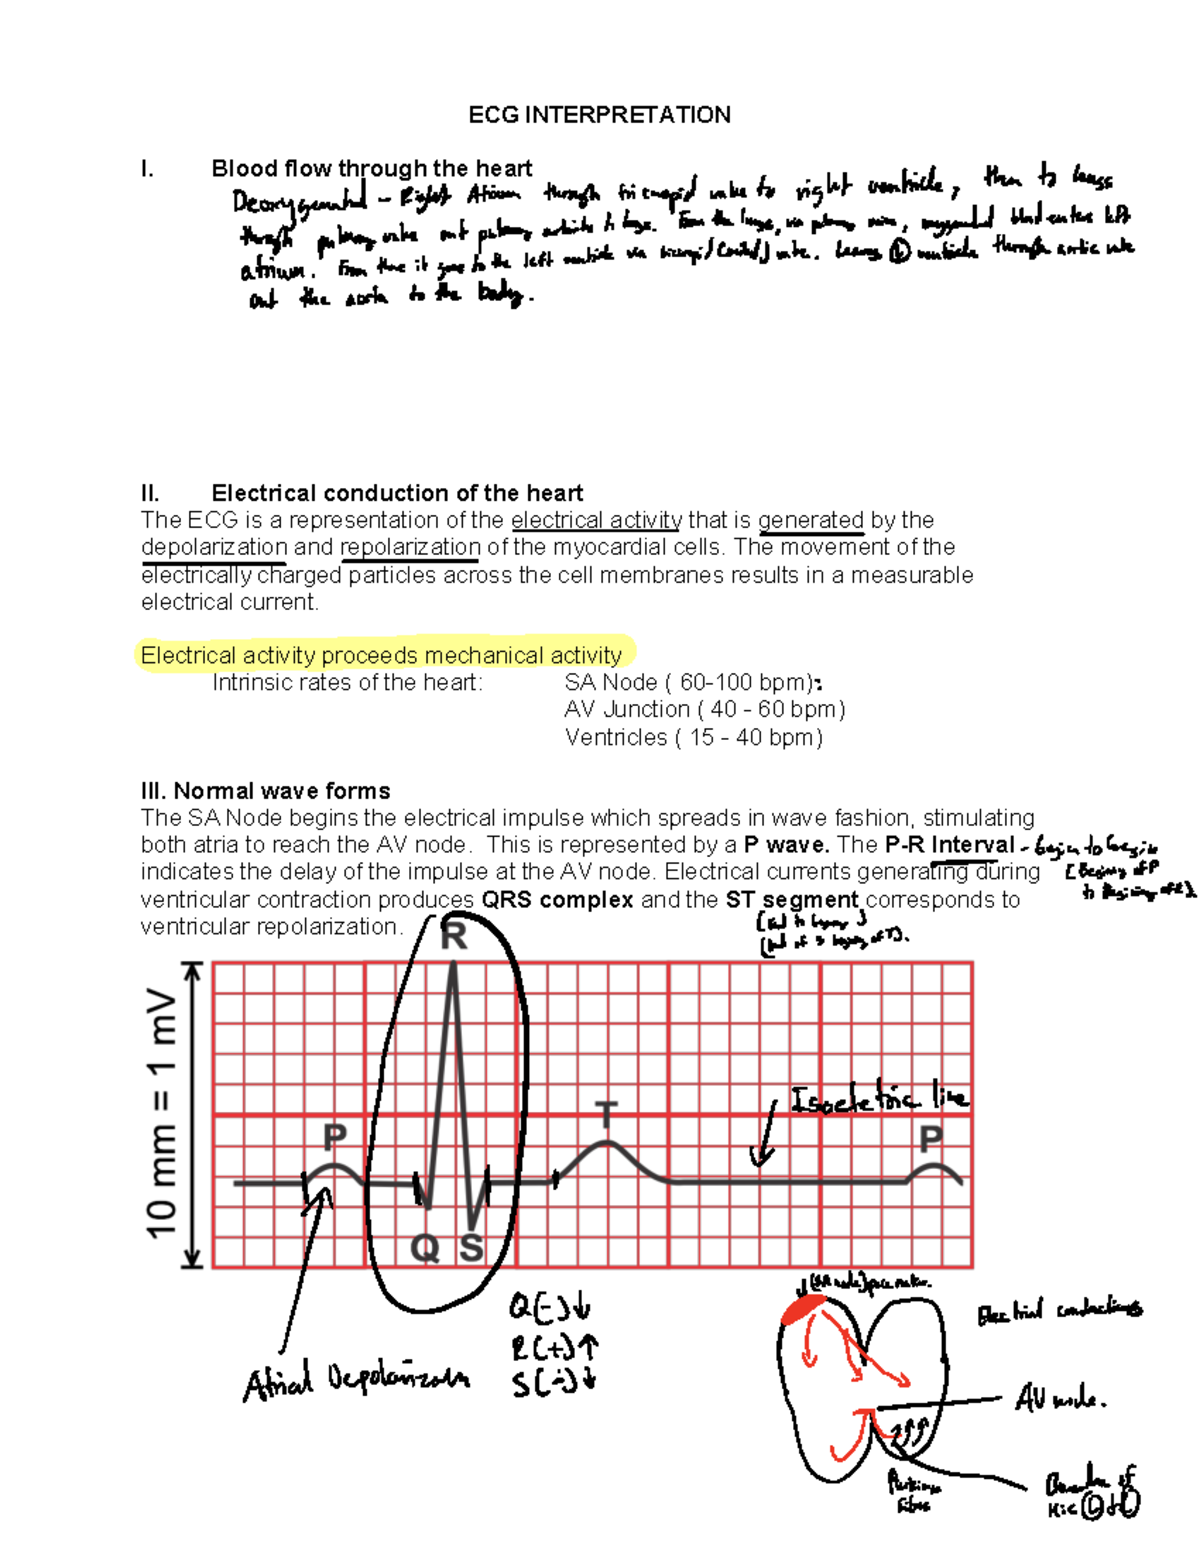 ECG INTERPRETATION
I. Blood flow through the heart
Deoxygenated - Right Atrium through tricuspid valve to right ventricle, then to lungs
through pulmonary valve out pulmonary to lungs. From the lungs, via pulmonary veins, oxygenated blood enters left
atrium. From there it goes to the left ventricle via bicuspid valve. Leaves (L) ventricle through aortic valve
out the aorta to the body.
II. Electrical conduction of the heart
The ECG is a representation of the electrical activity that is generated by the
depolarization and repolarization of the myocardial cells. The movement of the
electrically charged particles across the cell membranes results in a measurable
electrical current.
Electrical activity proceeds mechanical activity
Intrinsic rates of the heart: SA Node ( 60-100 bpm):
AV Junction ( 40 - 60 bpm)
Ventricles ( 15 - 40 bpm)
III. Normal wave forms
The SA Node begins the electrical impulse which spreads in wave fashion, stimulating
both atria to reach the AV node. This is represented by a P wave. The P-R Interval - begin to begin
indicates the delay of the impulse at the AV node. Electrical currents generating during
[Beginning of P
to Beginning of R]
ventricular contraction produces QRS complex and the ST segment corresponds to
ventricular repolarization.
[End to beginning]
[End of S beginning of T].
R
10 mm = 1 mV
Isoeletric line
P
T
P
Q S
Q (-) ↓
R (+) ↑
S (-) ↓
Atrial Depolarization
(SA node) pacemaker.
Electrical conductions
AV node.
Purkinje
Fibres
of
His (L) + (R)